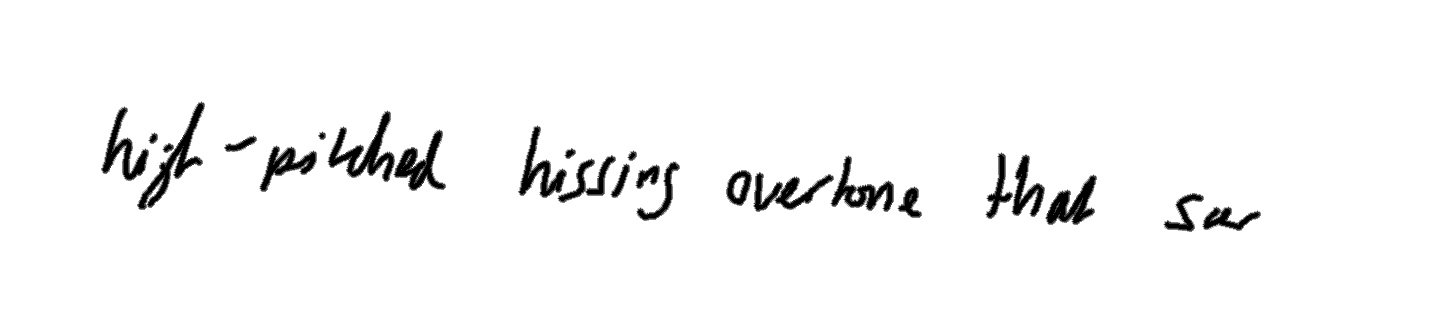 high-pitched hissing overtone that sur